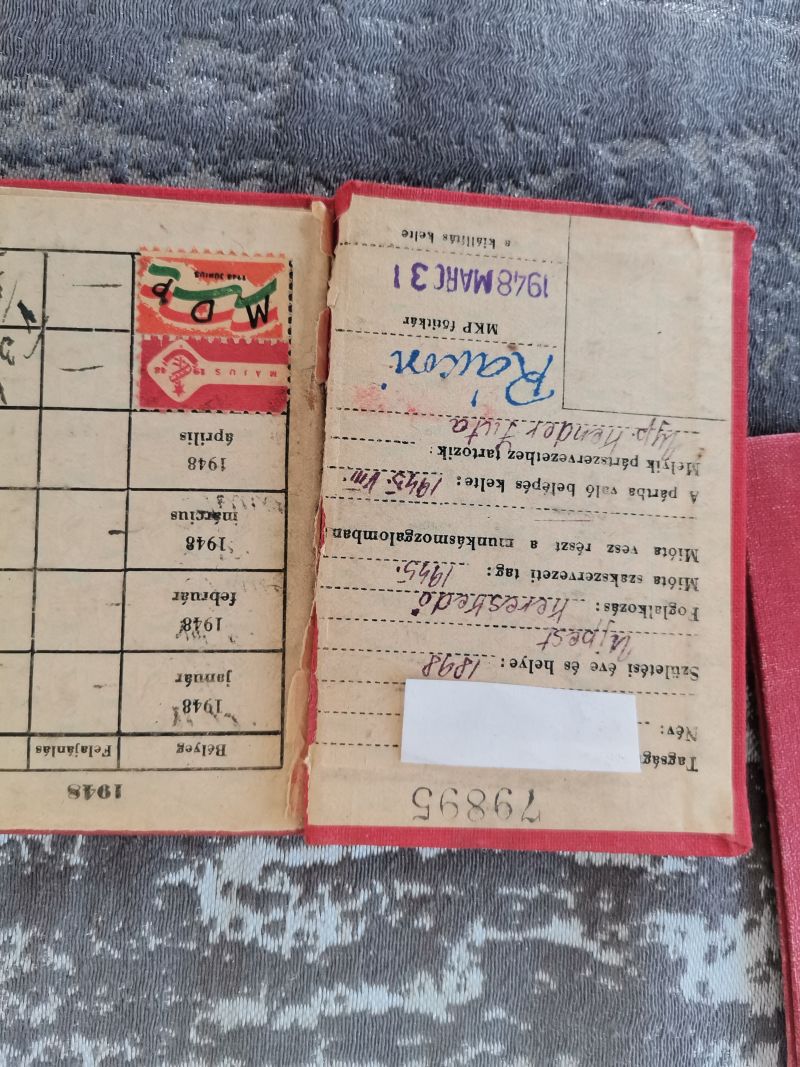 79895
Tagság
Név:
Születési éve és helye: 1898
Ujpest
Foglalkozás: Kereskedő
Mióta szakszervezeti tag: 1945.
Mióta vesz részt a munkásmozgalomban
A pártba való belépés kelte: 1945. VIII.
Melyik pártszervezethez tartozik:
Ujp. Kender Juta
Rákosi
MKP főtitkár
1948 MARC 31
a kiállítás kelte
1948
Bélyeg Felajánlás
1948
január
1948
február
1948
március
1948
április
MÁJUS 1948
MDP
1948 JÚNIUS